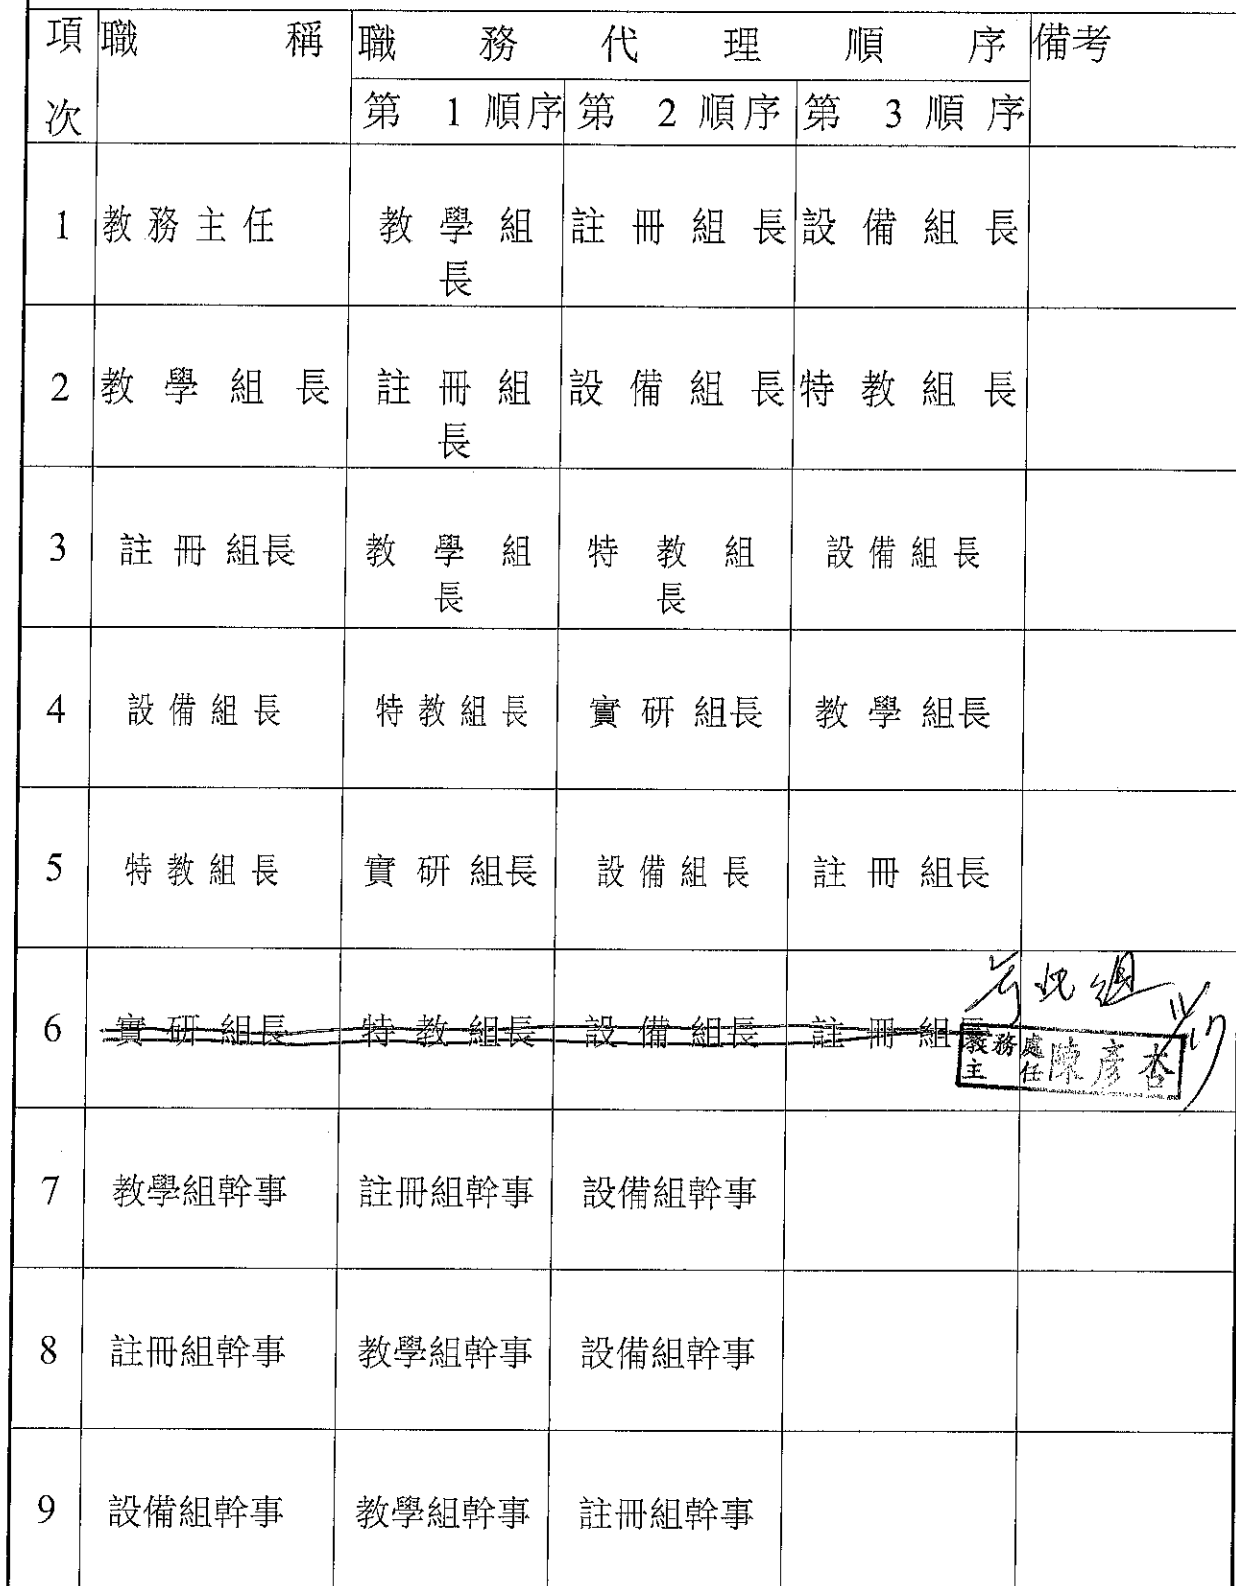 項次 職稱 職務代理順序 備考
第1順序 第2順序 第3順序
1 教務主任 教學組長 註冊組長 設備組長
2 教學組長 註冊組長 設備組長 特教組長
3 註冊組長 教學組長 特教組長 設備組長
4 設備組長 特教組長 實研組長 教學組長
5 特教組長 實研組長 設備組長 註冊組長
6 實研組長 特教組長 設備組長 註冊組長
教務處主任 陳彥杏
7 教學組幹事 註冊組幹事 設備組幹事
8 註冊組幹事 教學組幹事 設備組幹事
9 設備組幹事 教學組幹事 註冊組幹事